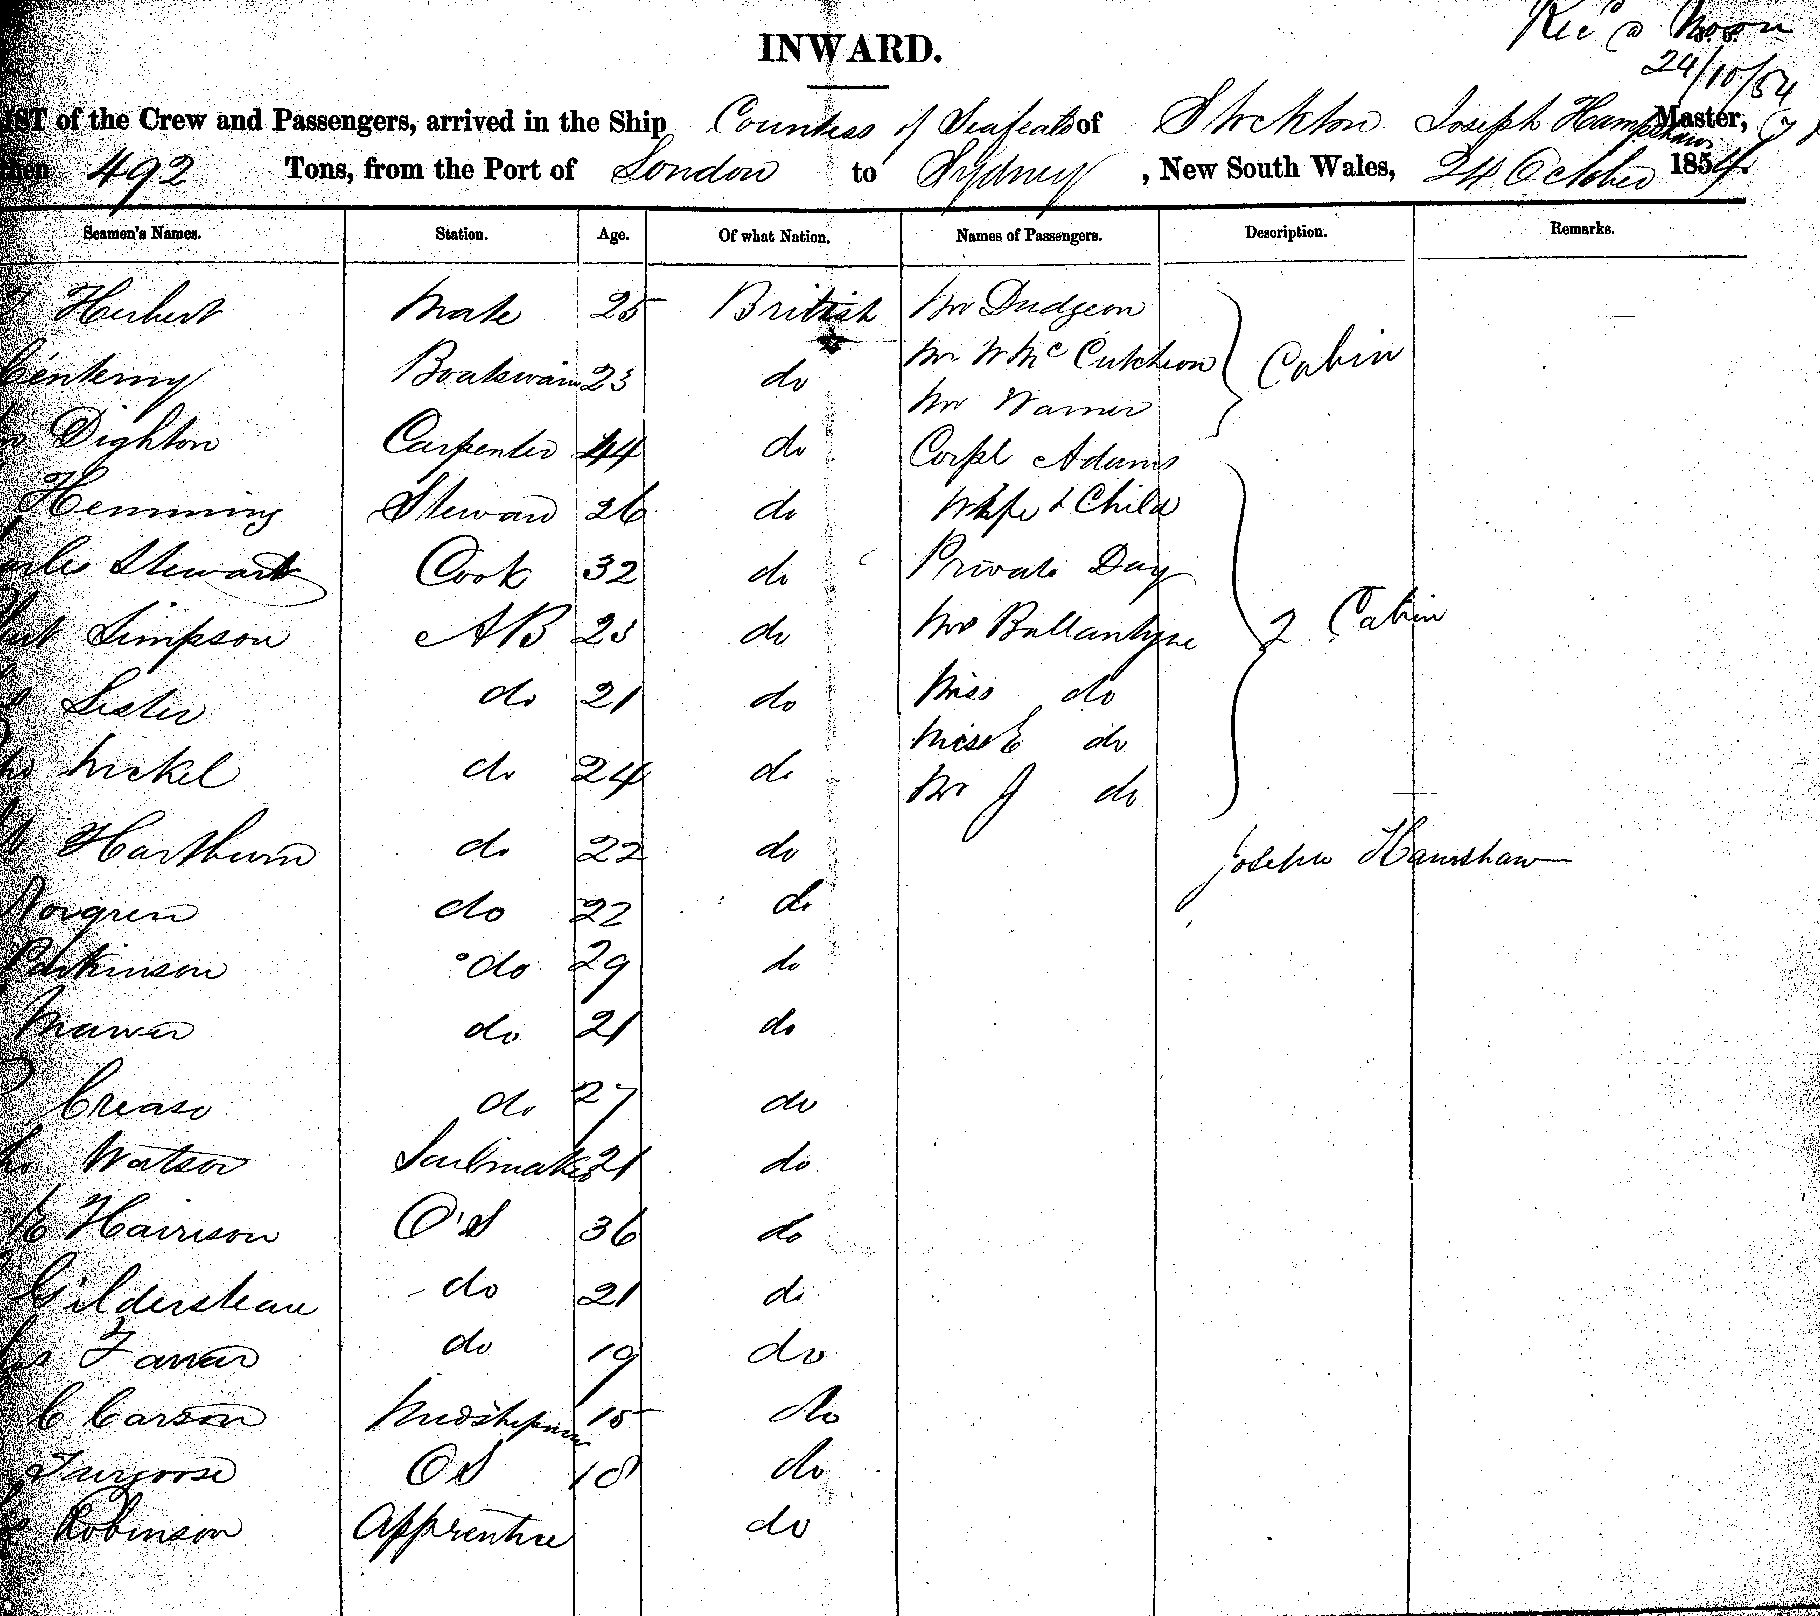 Rec'd Noon
24/10/54
INWARD.
LIST of the Crew and Passengers, arrived in the Ship Countess of Seafield of Stockton Joseph Hamshaw Master,
492 Tons, from the Port of London to Sydney, New South Wales, 24 October 1854.
Seamen's Names. Station. Age. Of what Nation. Names of Passengers. Description. Remarks.
Herbert Mate 25 British Mr Dudgeon
Mr W McCutcheon Cabin
Boatswain 23 do
Mr Warner
Dighton Carpenter 44 do Corpl Adams
Hemming Steward 26 do Wife & Child
Stewart Cook 32 do Private Day
Simpson AB 23 do Mrs Ballantyne 2 Cabin
Lister do 21 do Miss do
Miss E do
Nickel do 24 do Mr J do
Hartburn do 22 do Joseph Hamshaw
Norgren do 22 do
Parkinson do 29 do
Mawer do 21 do
Crease do 27 do
Watson Sailmaker 21 do
Harrison O'S 36 do
do 21 do
Farrar do 19 do
C Carson Midshipman 15 do
Furgoose OS 18 do
Robinson Apprentice do